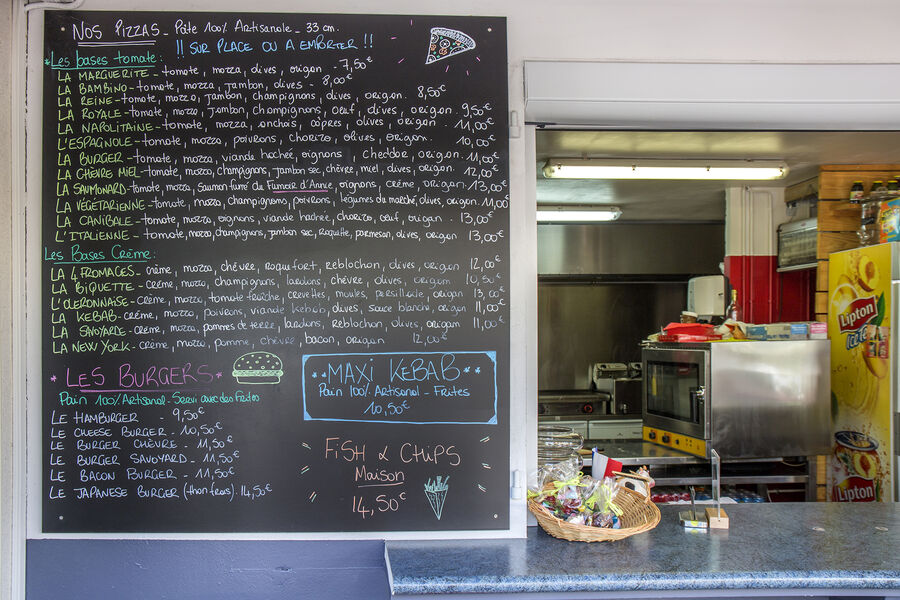 Nos Pizzas - Pâte 100% Artisanale - 33 cm.
!! SUR PLACE OU A EMPORTER !!
Les bases tomate :
LA MARGUERITE - tomate, mozza, olives, origan - 7,50€
LA BAMBINO - tomate, mozza, jambon, olives - 8,00€
LA REINE - tomate, mozza, jambon, champignons, olives, origan. 8,50€
LA ROYALE - tomate, mozza, jambon, champignons, oeuf, olives, origan. 9,50€
LA NAPOLITAINE - tomate, mozza, anchois, câpres, olives, origan. 11,00€
L'ESPAGNOLE - tomate, mozza, poivrons, chorizo, olives, origan. 10,00€
LA BURGER - tomate, mozza, viande hachée, oignons, cheddar, origan. 11,00€
LA CHÈVRE MIEL - tomate, mozza, champignons, jambon sec, chèvre, miel, olives, origan. 12,00€
LA SAUMONARD - tomate, mozza, saumon fumé du Fumoir d'Annie, oignons, crème, origan. 13,00€
LA VÉGÉTALIENNE - tomate, mozza, champignons, poivrons, légumes du marché, olives, origan. 11,00€
LA CANIBALE - tomate, mozza, oignons, viande hachée, chorizo, oeuf, origan. 13,00€
L'ITALIENNE - tomate, mozza, champignons, jambon sec, roquette, parmesan, olives, origan. 13,00€
Les Bases Crème :
LA 4 FROMAGES - crème, mozza, chèvre, roquefort, reblochon, olives, origan 12,00€
LA BIQUETTE - crème, mozza, champignons, lardons, chèvre, olives, origan 10,50€
L'OLERONNAISE - crème, mozza, tomate fraîche, crevettes, moules, persillade, origan 13,00€
LA KEBAB - crème, mozza, poivrons, viande kebab, olives, sauce blanche, origan 11,00€
LA SAVOYARDE - crème, mozza, pommes de terre, lardons, reblochon, olives, origan 11,00€
LA NEW YORK - crème, mozza, pomme, chèvre, bacon, origan 12,00€
LES BURGERS
Pain 100% Artisanal - Servi avec des Frites
LE HAMBURGER - 9,50€
LE CHEESE BURGER - 10,50€
LE BURGER CHÈVRE - 11,50€
LE BURGER SAVOYARD - 11,50€
LE BACON BURGER - 11,50€
LE JAPANESE BURGER (thon frais). 14,50€
MAXI KEBAB
Pain 100% Artisanal - Frites
10,50€
FISH & CHIPS
Maison
14,50€
Lipton
Ice
Lipton